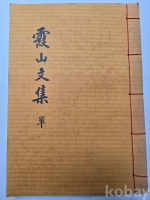 霞山文集
單
kobay